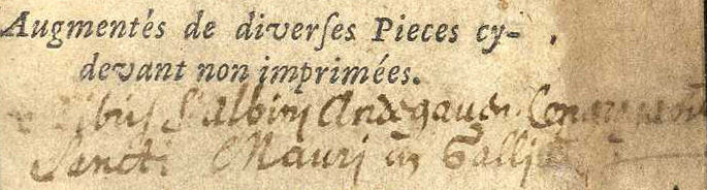 Augmentés de diverſes Pieces cy-
devant non imprimées.
S. albini Andegaven. Congreganis
Sancti Mauri in Gallia